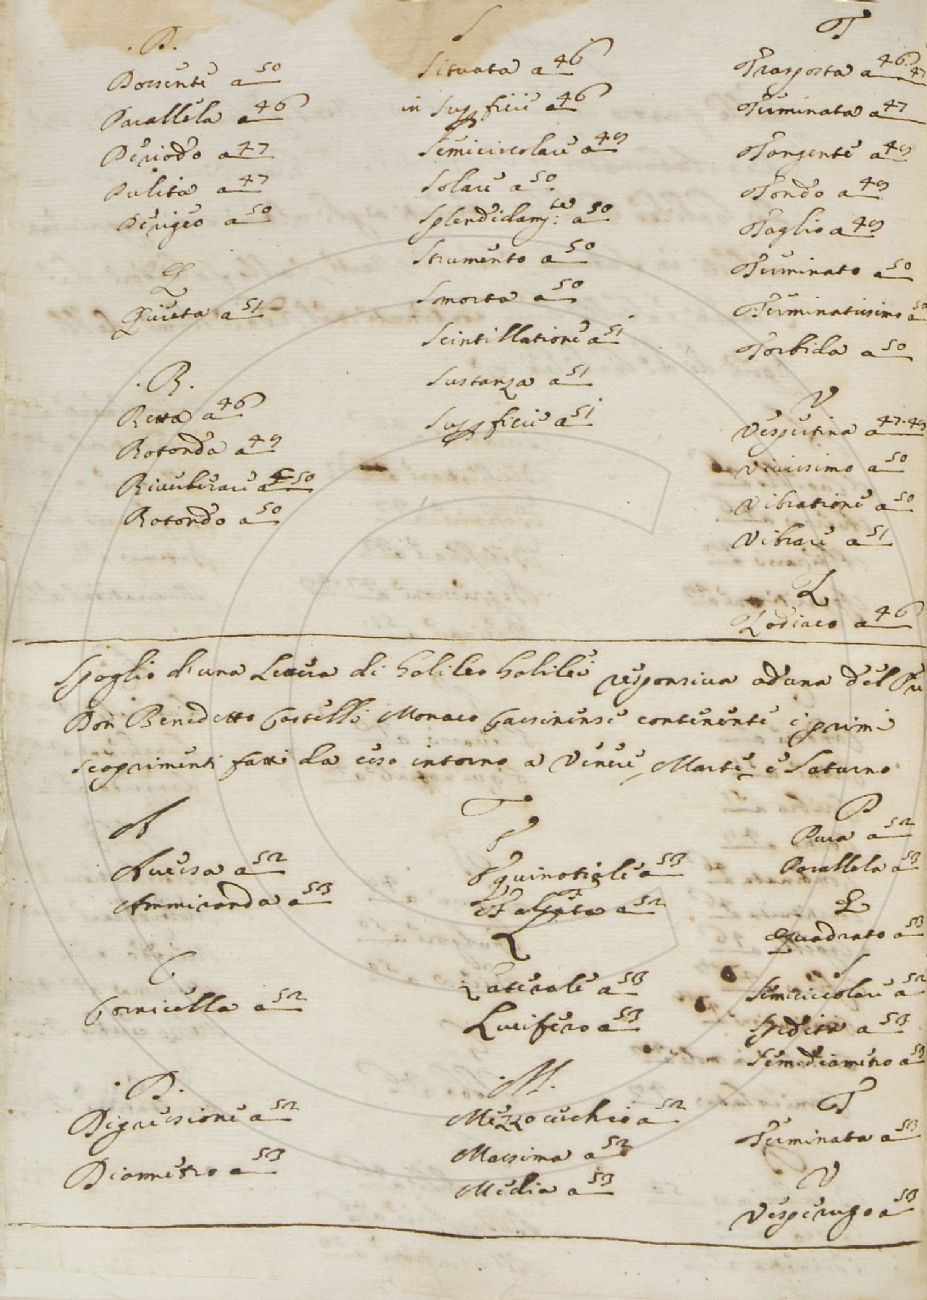 .P.
Parallela a 46
Periodo a 47
Pulita a 47
Perigeo a 50
Q
Quieta a 51
.R.
Retta a 46
Rotonda a 49
Riverberare a 50
Rotondo a 50
S
Situata a 46
in Supperficie a 46
Semicircolare a 49
Solare a 50
Splendidam.te a 50
Strumento a 50
Smorta a 50
Scintillatione a 51
Sustanza a 51
Supperficie a 51
T
Trasporta a 46. 47
Terminata a 47
Tangente a 49
Tondo a 49
Taglio a 49
Terminato a 50
Terminatissimo a 50
Torbida a 50
V
Vespertina a 47. 49
Vivissimo a 50
Vibratione a 50
Vibrare a 51
Z
Zodiaco a 46
Spoglio d'una Lettera di Galileo Galilei responsiva ad una del
Don Benedetto Castelli Monaco Cassinense continente i primi
scoprimenti fatti da esso intorno a Venere, Marte, e Saturno
A
Aversa a 52
Ammiranda a 53
C
Cornicella a 52
.D.
Digressione a 52
Diametro a 53
F
Falcata a 52
L
Laterale a 53
Lucifero a 53
.M.
Mezzo cerchio a 52
Massima a 52
Media a 53
P
Pura a 52
Parallela a 53
Q
Quadrato a 53
S
Semicircolare a 52
Semidiametro a 53
T
Terminata a 53
V
Vesperugo a 53